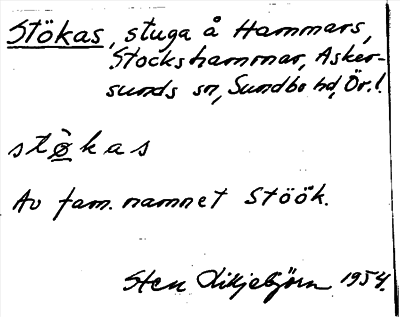 Stökas, stuga å Hammars,
Stockshammar, Asker-
sunds sn, Sundbo hd, Ör. l.
stø̀kas
Av fam. namnet Stöök.
Sten Liljebjörn 1954.